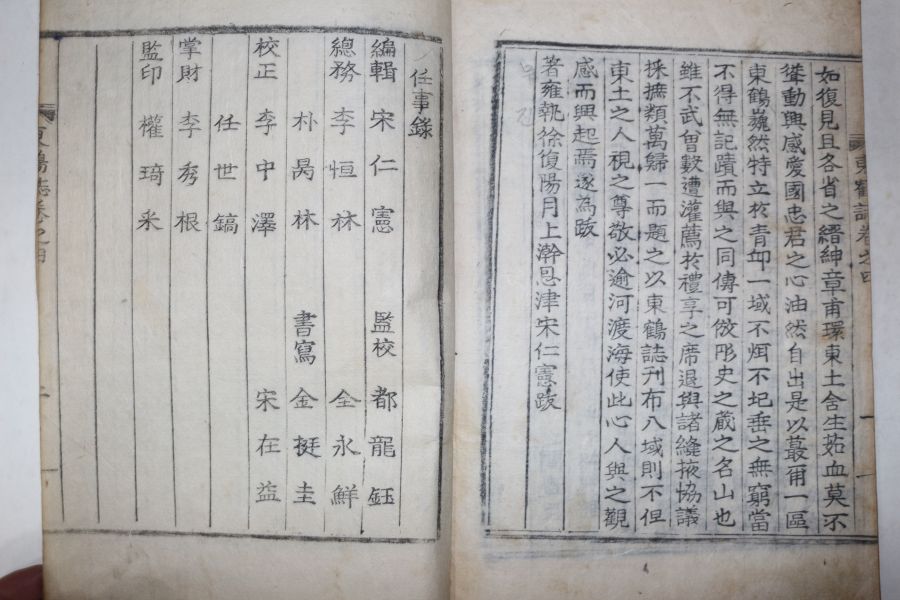 東鶴誌卷之四
一
如復見且各省之縉紳章甫環東土含生茹血莫不
聳動興感愛國忠君之心油然自出是以蕞爾一區
東鶴巍然特立於青邱一域不烜不圮垂之無窮當
不得無記蹟而與之同傳可倣彤史之藏之名山也
雖不武曾數遭灌薦於禮享之席退與諸縫掖協議
採摭類萬歸一而題之以東鶴誌刊布八域則不但
東土之人視之尊敬必逾河渡海使此心人與之觀
感而興起焉遂為跋
著雍執徐復陽月上澣恩津宋仁憲跋
任事錄
編輯 宋仁憲 監校 都龍鈺
總務 李恒林 全永鮮
朴昺林 書寫 金挺圭
校正 李中澤 宋在益
任世鎬
掌財 李秀根
監印 權琦采
東鶴誌卷之四
二